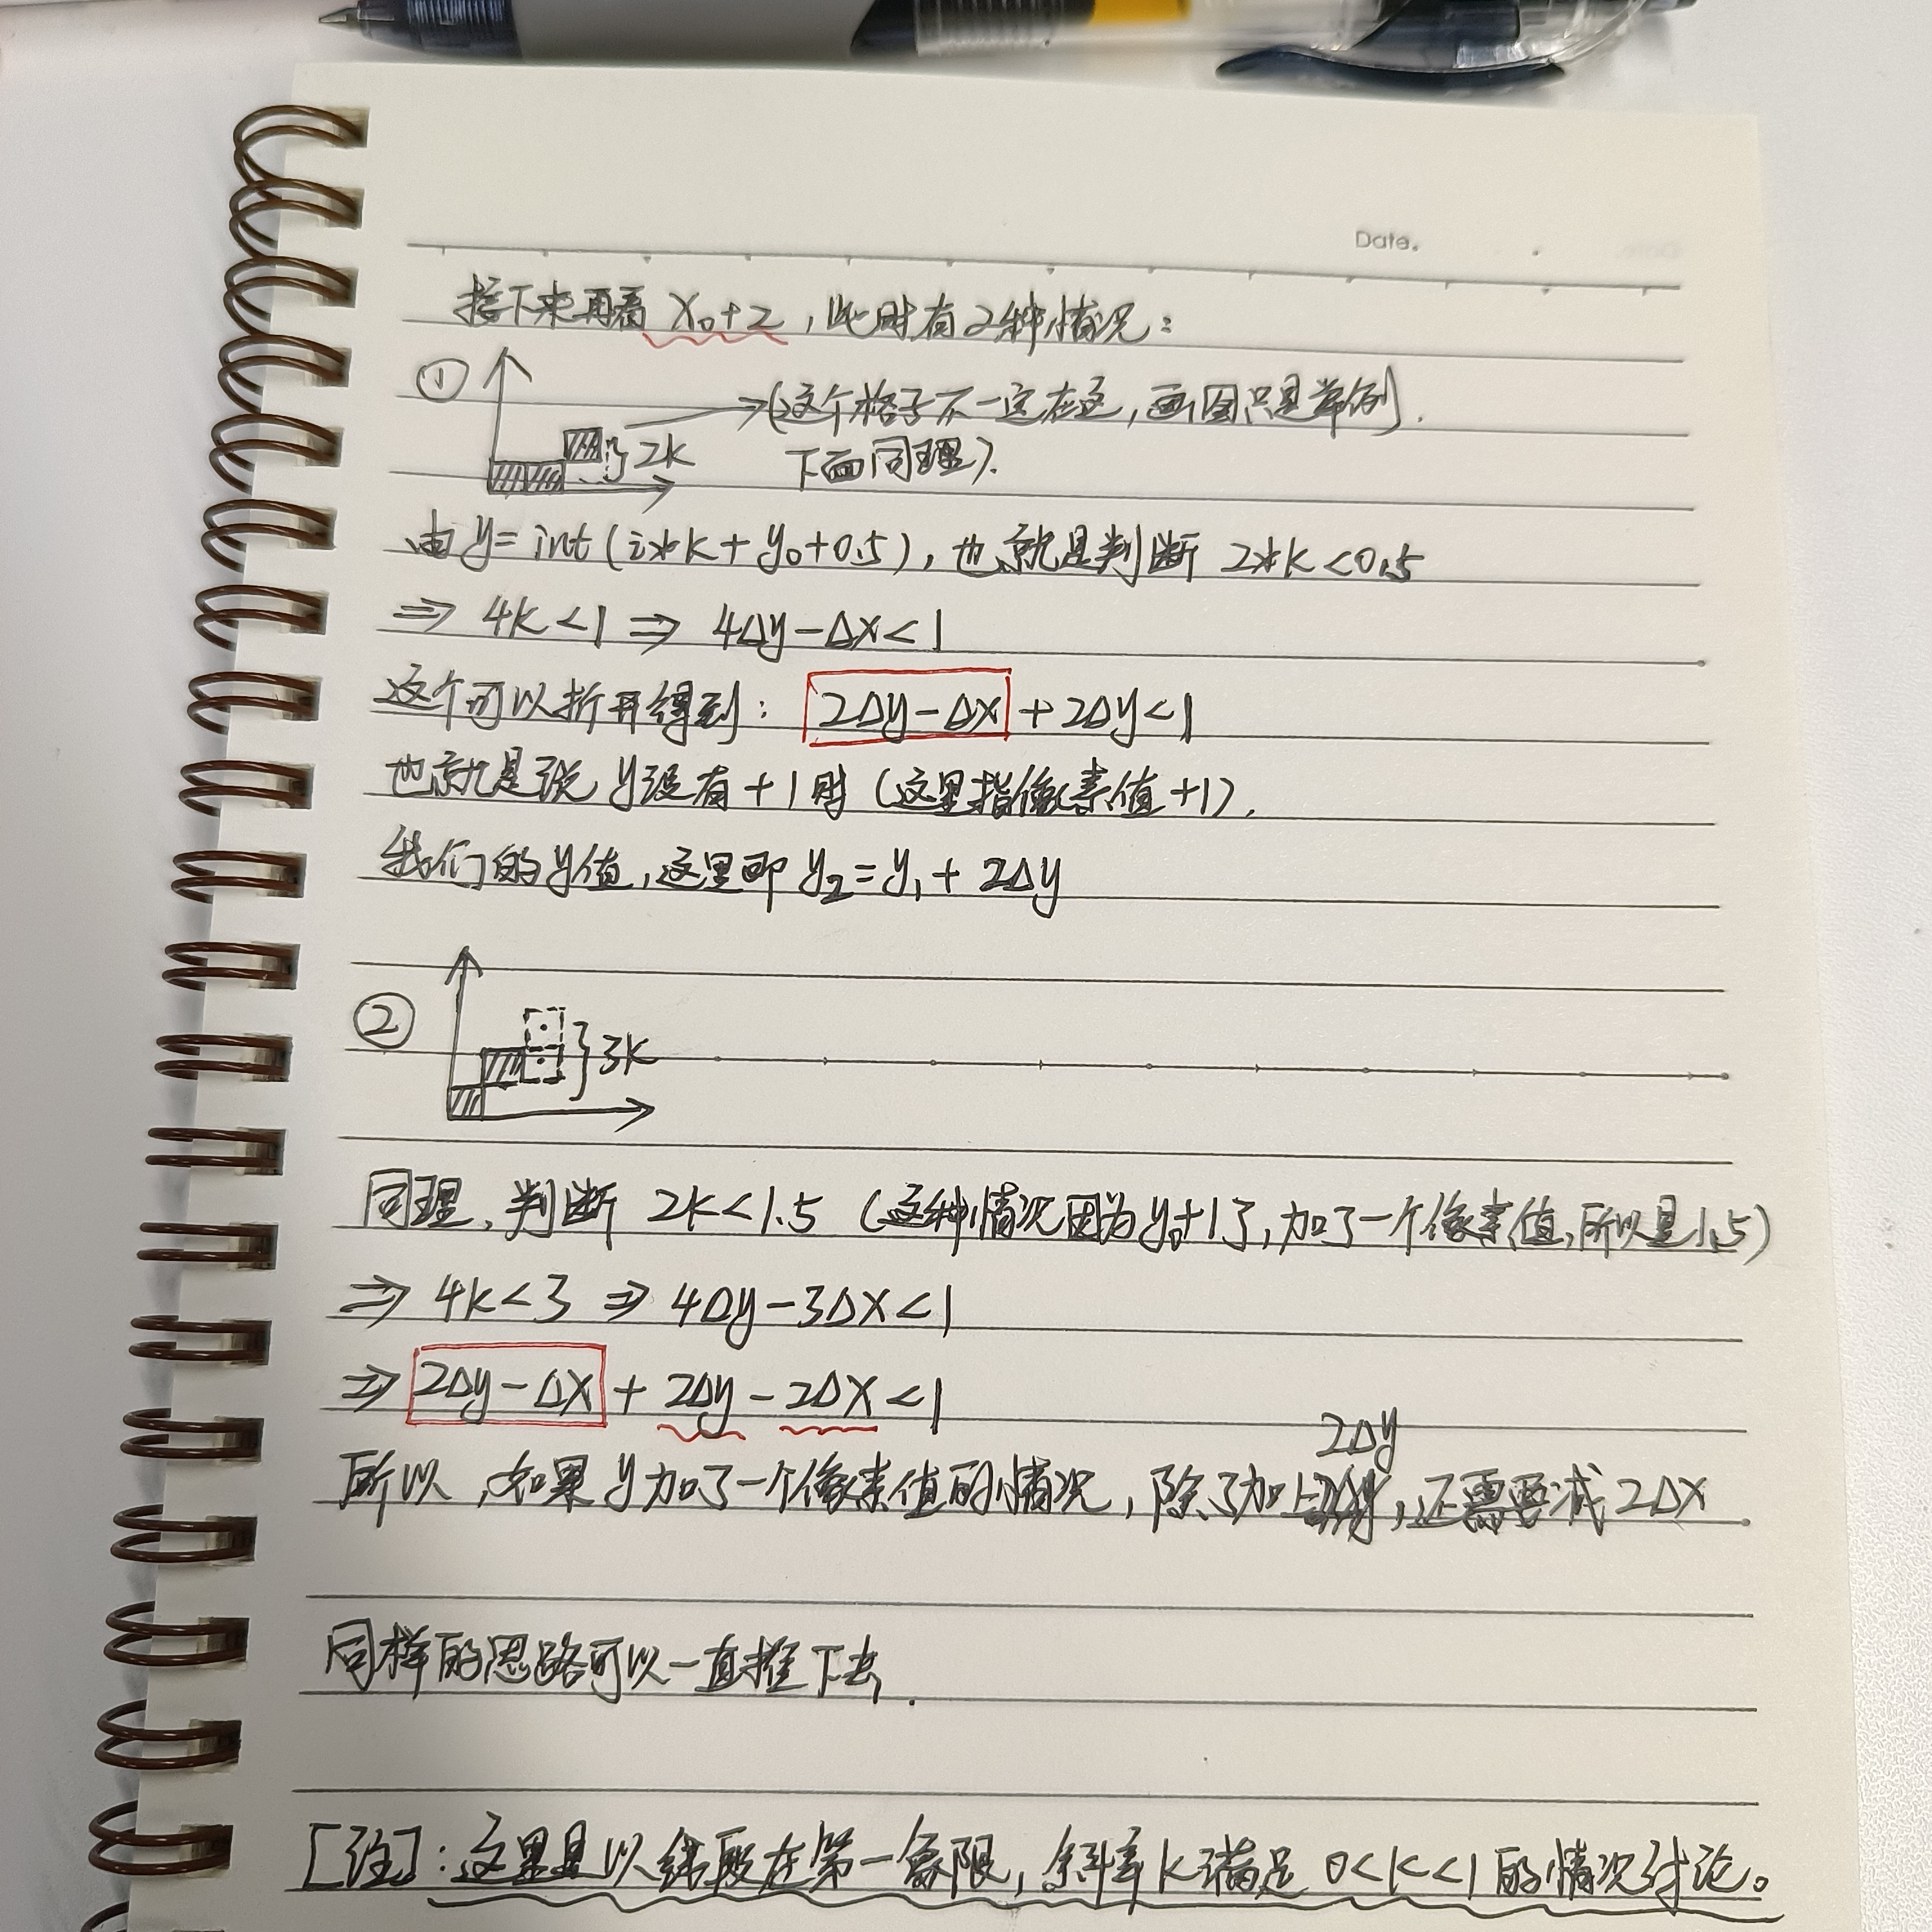 Date.
接下来再看 x₀+2，此时有2种情况：
① →(这个格子不一定在这，画图只是举例，
2k 下面同理).
由 y=int(i*k+y₀+0.5)，也就是判断 2*k<0.5
⇒ 4k<1 ⇒ 4Δy-Δx<1
这个可以拆开得到： 2Δy-Δx +2Δy<1
也就是说 y没有+1时 (这里指像素值+1).
我们的y值，这里即 y₂=y₁+2Δy
② }3k
同理，判断 2k<1.5 (这种情况因为y₀+1了，加了一个像素值，所以是1.5)
⇒ 4k<3 ⇒ 4Δy-3Δx<1
⇒ 2Δy-Δx + 2Δy-2Δx<1
所以，如果y加了一个像素值的情况，除了加上2Δy，还需要减2Δx
同样的思路可以一直推下去.
[注]：这里是以线段在第一象限，斜率k满足 0<k<1的情况讨论。